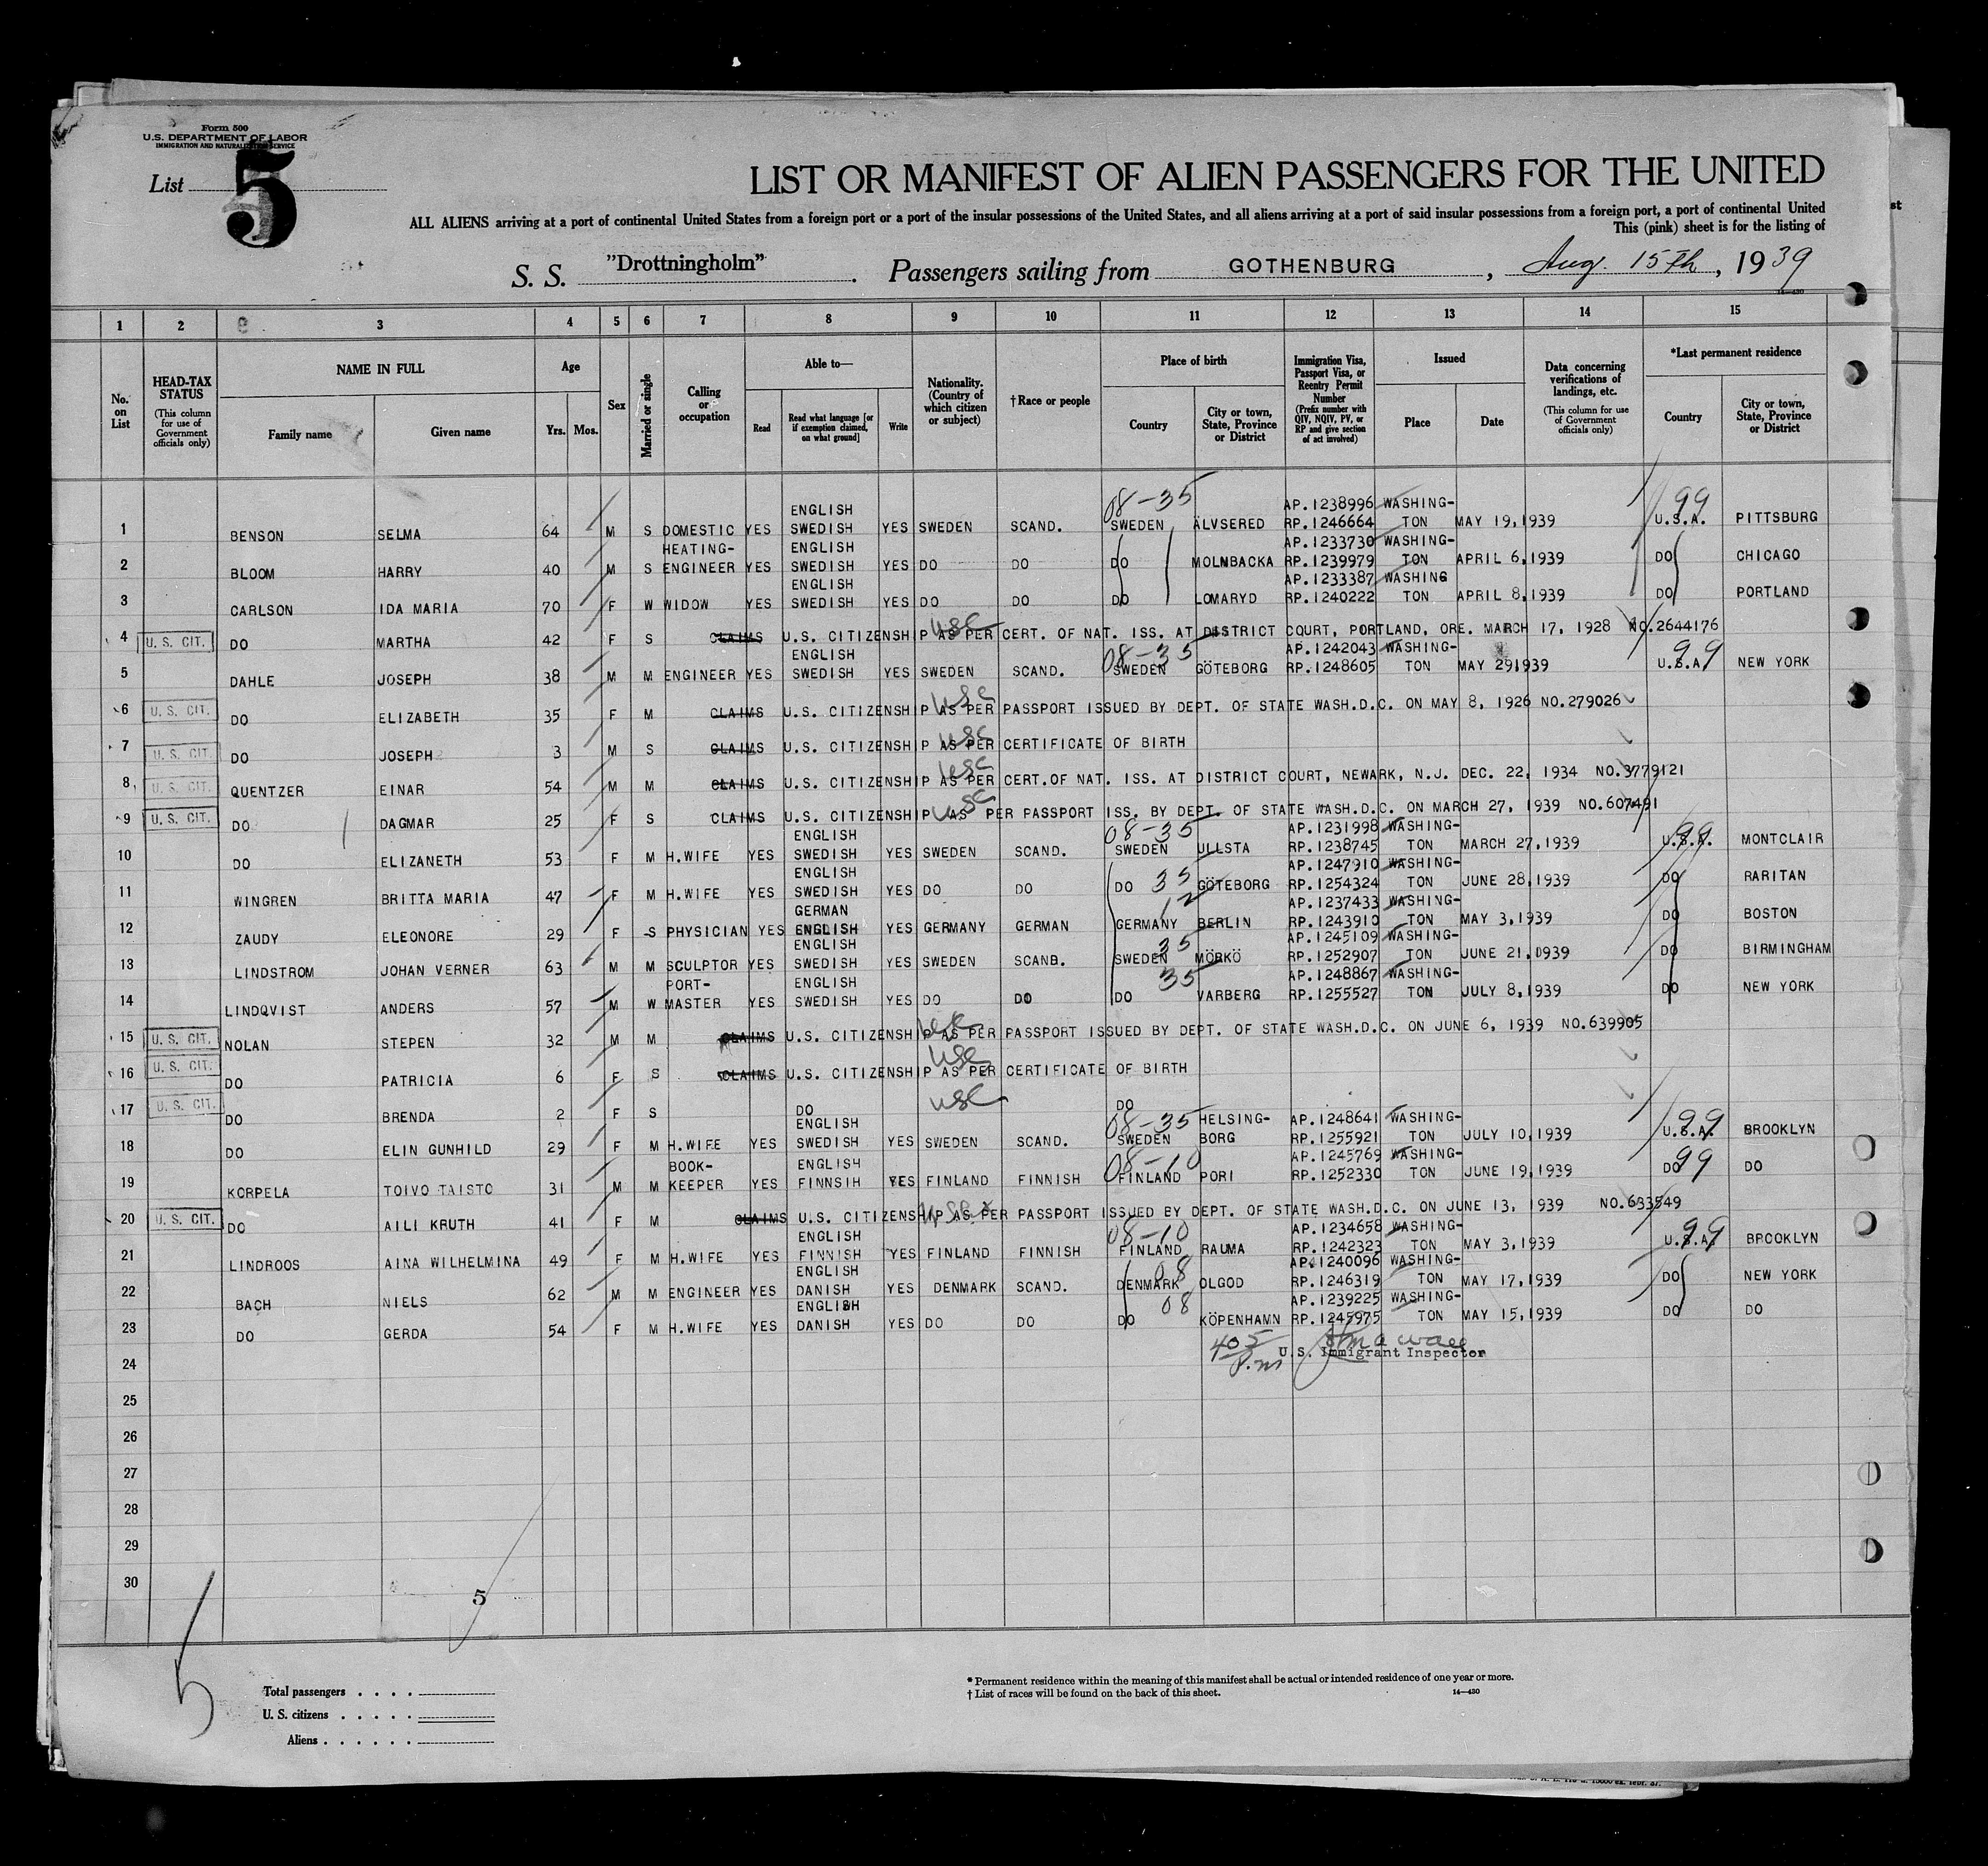 Form 500
U.S. DEPARTMENT OF LABOR
IMMIGRATION AND NATURALIZATION SERVICE
List 5
LIST OR MANIFEST OF ALIEN PASSENGERS FOR THE UNITED
ALL ALIENS arriving at a port of continental United States from a foreign port or a port of the insular possessions of the United States, and all aliens arriving at a port of said insular possessions from a foreign port, a port of continental United
This (pink) sheet is for the listing of
st
S. S. "Drottningholm". Passengers sailing from GOTHENBURG, Aug. 15th, 1939
14-430
1 2 3 4 5 6 7 8 9 10 11 12 13 14 15
No. on List
HEAD-TAX STATUS (This column for use of Government officials only)
NAME IN FULL
Family name Given name
Age
Yrs. Mos.
Sex
Married or single
Calling or occupation
Able to—
Read Read what language [or if exemption claimed, on what ground] Write
Nationality. (Country of which citizen or subject)
†Race or people
Place of birth
Country City or town, State, Province or District
Immigration Visa, Passport Visa, or Reentry Permit Number (Prefix number with QIV, NQIV, PV, or RP and give section of act involved)
Issued
Place Date
Data concerning verifications of landings, etc. (This column for use of Government officials only)
*Last permanent residence
Country City or town, State, Province or District
08-35 99
ENGLISH AP.1238996 WASHING-
1 BENSON SELMA 64 M S DOMESTIC YES SWEDISH YES SWEDEN SCAND. SWEDEN ÄLVSERED RP.1246664 TON MAY 19,1939 U.S.A. PITTSBURG
HEATING- ENGLISH AP.1233730 WASHING-
2 BLOOM HARRY 40 M S ENGINEER YES SWEDISH YES DO DO DO MOLNBACKA RP.1239979 TON APRIL 6,1939 DO CHICAGO
ENGLISH AP.1233387 WASHING
3 CARLSON IDA MARIA 70 F W WIDOW YES SWEDISH YES DO DO DO LOMARYD RP.1240222 TON APRIL 8,1939 DO PORTLAND
4 U. S. CIT. DO MARTHA 42 F S CLAIMS U.S. CITIZENSHIP AS PER CERT. OF NAT. ISS. AT DISTRICT COURT, PORTLAND, ORE. MARCH 17, 1928 NO.2644176
usc
08-35 99
ENGLISH AP.1242043 WASHING-
5 DAHLE JOSEPH 38 M M ENGINEER YES SWEDISH YES SWEDEN SCAND. SWEDEN GÖTEBORG RP.1248605 TON MAY 291939 U.S.A. NEW YORK
6 U. S. CIT. DO ELIZABETH 35 F M CLAIMS U.S. CITIZENSHIP AS PER PASSPORT ISSUED BY DEPT. OF STATE WASH.D.C. ON MAY 8, 1926 NO.279026
usc
7 U. S. CIT. DO JOSEPH 3 M S CLAIMS U.S. CITIZENSHIP AS PER CERTIFICATE OF BIRTH
usc
8 U. S. CIT. QUENTZER EINAR 54 M M CLAIMS U.S. CITIZENSHIP AS PER CERT.OF NAT. ISS. AT DISTRICT COURT, NEWARK, N.J. DEC. 22, 1934 NO.3779121
usc
9 U. S. CIT. DO DAGMAR 25 F S CLAIMS U.S. CITIZENSHIP AS PER PASSPORT ISS. BY DEPT. OF STATE WASH.D.C. ON MARCH 27, 1939 NO.607491
usc
08-35 99
ENGLISH AP.1231998 WASHING-
10 DO ELIZANETH 53 F M H.WIFE YES SWEDISH YES SWEDEN SCAND. SWEDEN ULLSTA RP.1238745 TON MARCH 27,1939 U.S.A. MONTCLAIR
ENGLISH AP.1247910 WASHING-
11 WINGREN BRITTA MARIA 47 F M H.WIFE YES SWEDISH YES DO DO DO 35 GÖTEBORG RP.1254324 TON JUNE 28,1939 DO RARITAN
GERMAN 12 AP.1237433 WASHING-
12 ZAUDY ELEONORE 29 F S PHYSICIAN YES ENGLISH YES GERMANY GERMAN GERMANY BERLIN RP.1243910 TON MAY 3,1939 DO BOSTON
ENGLISH 35 AP.1245109 WASHING-
13 LINDSTROM JOHAN VERNER 63 M M SCULPTOR YES SWEDISH YES SWEDEN SCANB. SWEDEN MÖRKÖ RP.1252907 TON JUNE 21,1939 DO BIRMINGHAM
PORT- ENGLISH 35 AP.1248867 WASHING-
14 LINDQVIST ANDERS 57 M W MASTER YES SWEDISH YES DO DO DO VARBERG RP.1255527 TON JULY 8,1939 DO NEW YORK
15 U. S. CIT. NOLAN STEPEN 32 M M CLAIMS U.S. CITIZENSHIP AS PER PASSPORT ISSUED BY DEPT. OF STATE WASH.D.C. ON JUNE 6, 1939 NO.639905
usc
16 U. S. CIT. DO PATRICIA 6 F S CLAIMS U.S. CITIZENSHIP AS PER CERTIFICATE OF BIRTH
usc
17 U. S. CIT. DO BRENDA 2 F S DO usc DO
08-35 99
ENGLISH HELSING- AP.1248641 WASHING-
18 DO ELIN GUNHILD 29 F M H.WIFE YES SWEDISH YES SWEDEN SCAND. SWEDEN BORG RP.1255921 TON JULY 10,1939 U.S.A. BROOKLYN
08-10 99
BOOK- ENGLISH AP.1245769 WASHING-
19 KORPELA TOIVO TAISTO 31 M M KEEPER YES FINNSIH YES FINLAND FINNISH FINLAND PORI RP.1252330 TON JUNE 19,1939 DO DO
20 U. S. CIT. DO AILI KRUTH 41 F M CLAIMS U.S. CITIZENSHIP AS PER PASSPORT ISSUED BY DEPT. OF STATE WASH.D.C. ON JUNE 13, 1939 NO.633549
08-10 99
ENGLISH AP.1234658 WASHING-
21 LINDROOS AINA WILHELMINA 49 F M H.WIFE YES FINNISH YES FINLAND FINNISH FINLAND RAUMA RP.1242323 TON MAY 3,1939 U.S.A. BROOKLYN
ENGLISH 08 AP.1240096 WASHING-
22 BACH NIELS 62 M M ENGINEER YES DANISH YES DENMARK SCAND. DENMARK OLGOD RP.1246319 TON MAY 17,1939 DO NEW YORK
ENGLISH 08 AP.1239225 WASHING-
23 DO GERDA 54 F M H.WIFE YES DANISH YES DO DO DO KÖPENHAMN RP.1245975 TON MAY 15,1939 DO DO
24 405 p.m U.S. Immigrant Inspector
25
26
27
28
29
30
5
5
Total passengers . . . .
U. S. citizens . . . . .
Aliens . . . . . .
* Permanent residence within the meaning of this manifest shall be actual or intended residence of one year or more.
† List of races will be found on the back of this sheet. 14-430